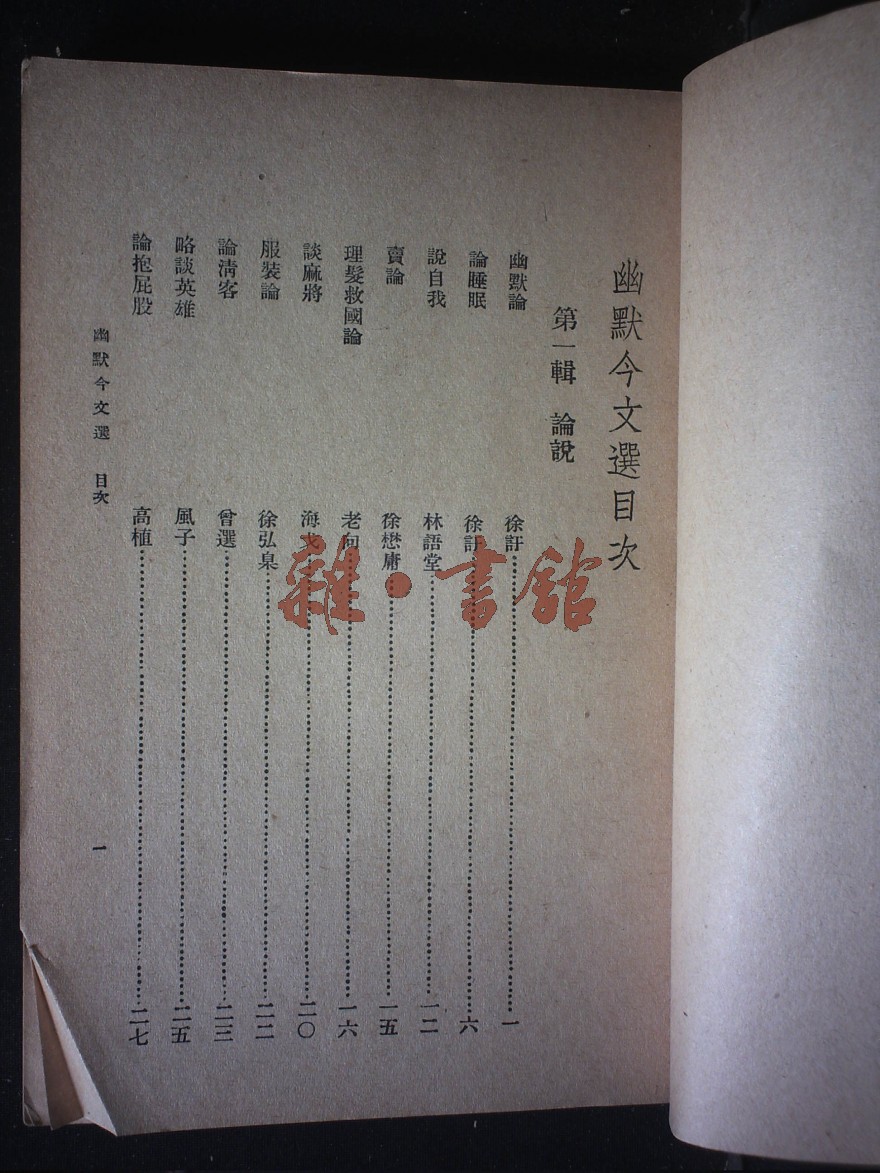 幽默今文選目次
第一輯 論說
幽默論 徐訏 一
論睡眠 徐訏 六
說自我 林語堂 一二
賣論 徐懋庸 一五
理髮救國論 老向 一六
談麻將 海戈 二〇
服裝論 徐弘臬 二二
論清客 曾選 二三
略談英雄 風子 二五
論抱屁股 高植 二七
幽默今文選 目次 一
雜·書館